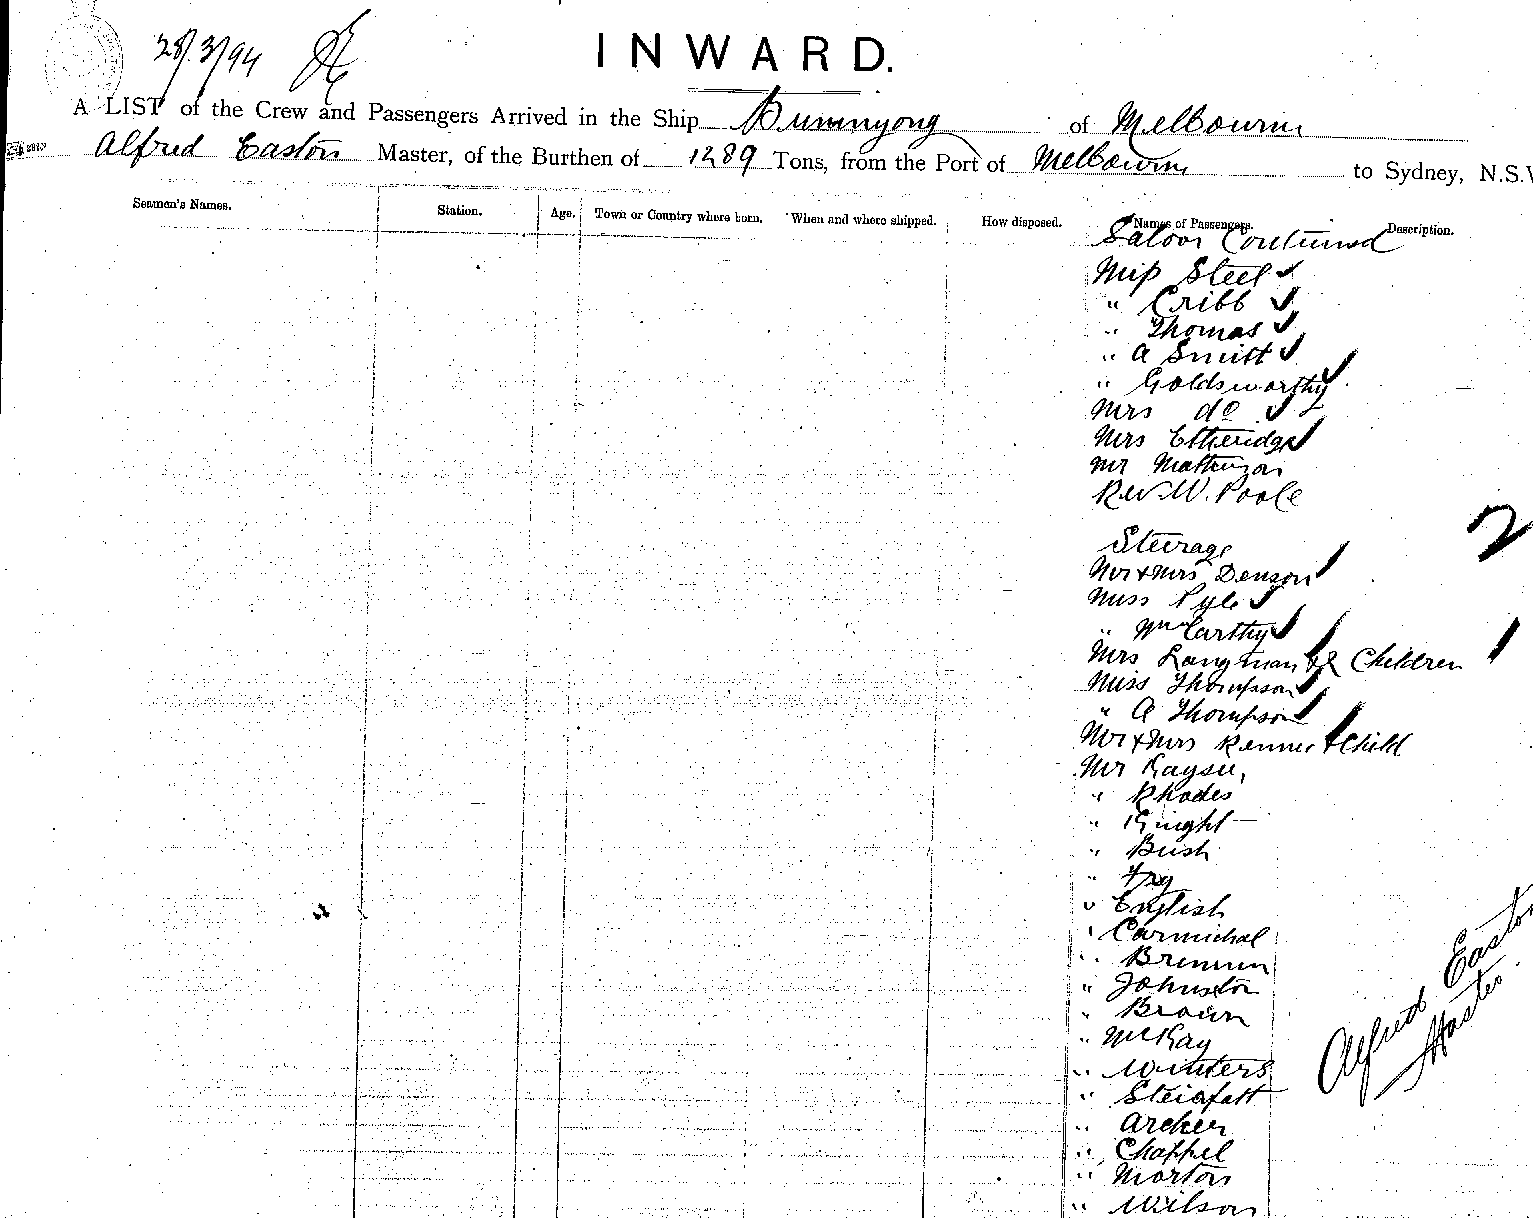 28/3/94
INWARD.
A LIST of the Crew and Passengers Arrived in the Ship Buninyong of Melbourne
Alfred Easton Master, of the Burthen of 1289 Tons, from the Port of Melbourne to Sydney, N.S.W
Seamen's Names. Station. Age. Town or Country where born. When and where shipped. How disposed. Names of Passengers. Description.
Saloon Continued
Miss Steel ✓
" Cribb ✓
" Thomas ✓
" A Smith ✓
" Goldsworthy ✓
Mrs do ✓
Mrs Etheridge ✓
Mr Mathieson
Rev W. Poole
2
Steerage
Mr & Mrs Denson
Miss Pyle ✓
" McCarthy ✓
Mrs Langman & 2 Children
Miss Thompson
" A Thompson
Mr & Mrs Rennie & Child
Mr Kayser,
" Rhodes
" Knight
" Bush
" Fry
" English
" Carmichal
" Brennen
" Johnston
" Brown
" McKay
" Winters
" Steinfatt
" Archer
" Chappel
" Morton
" Wilson
Alfred Easton
Master